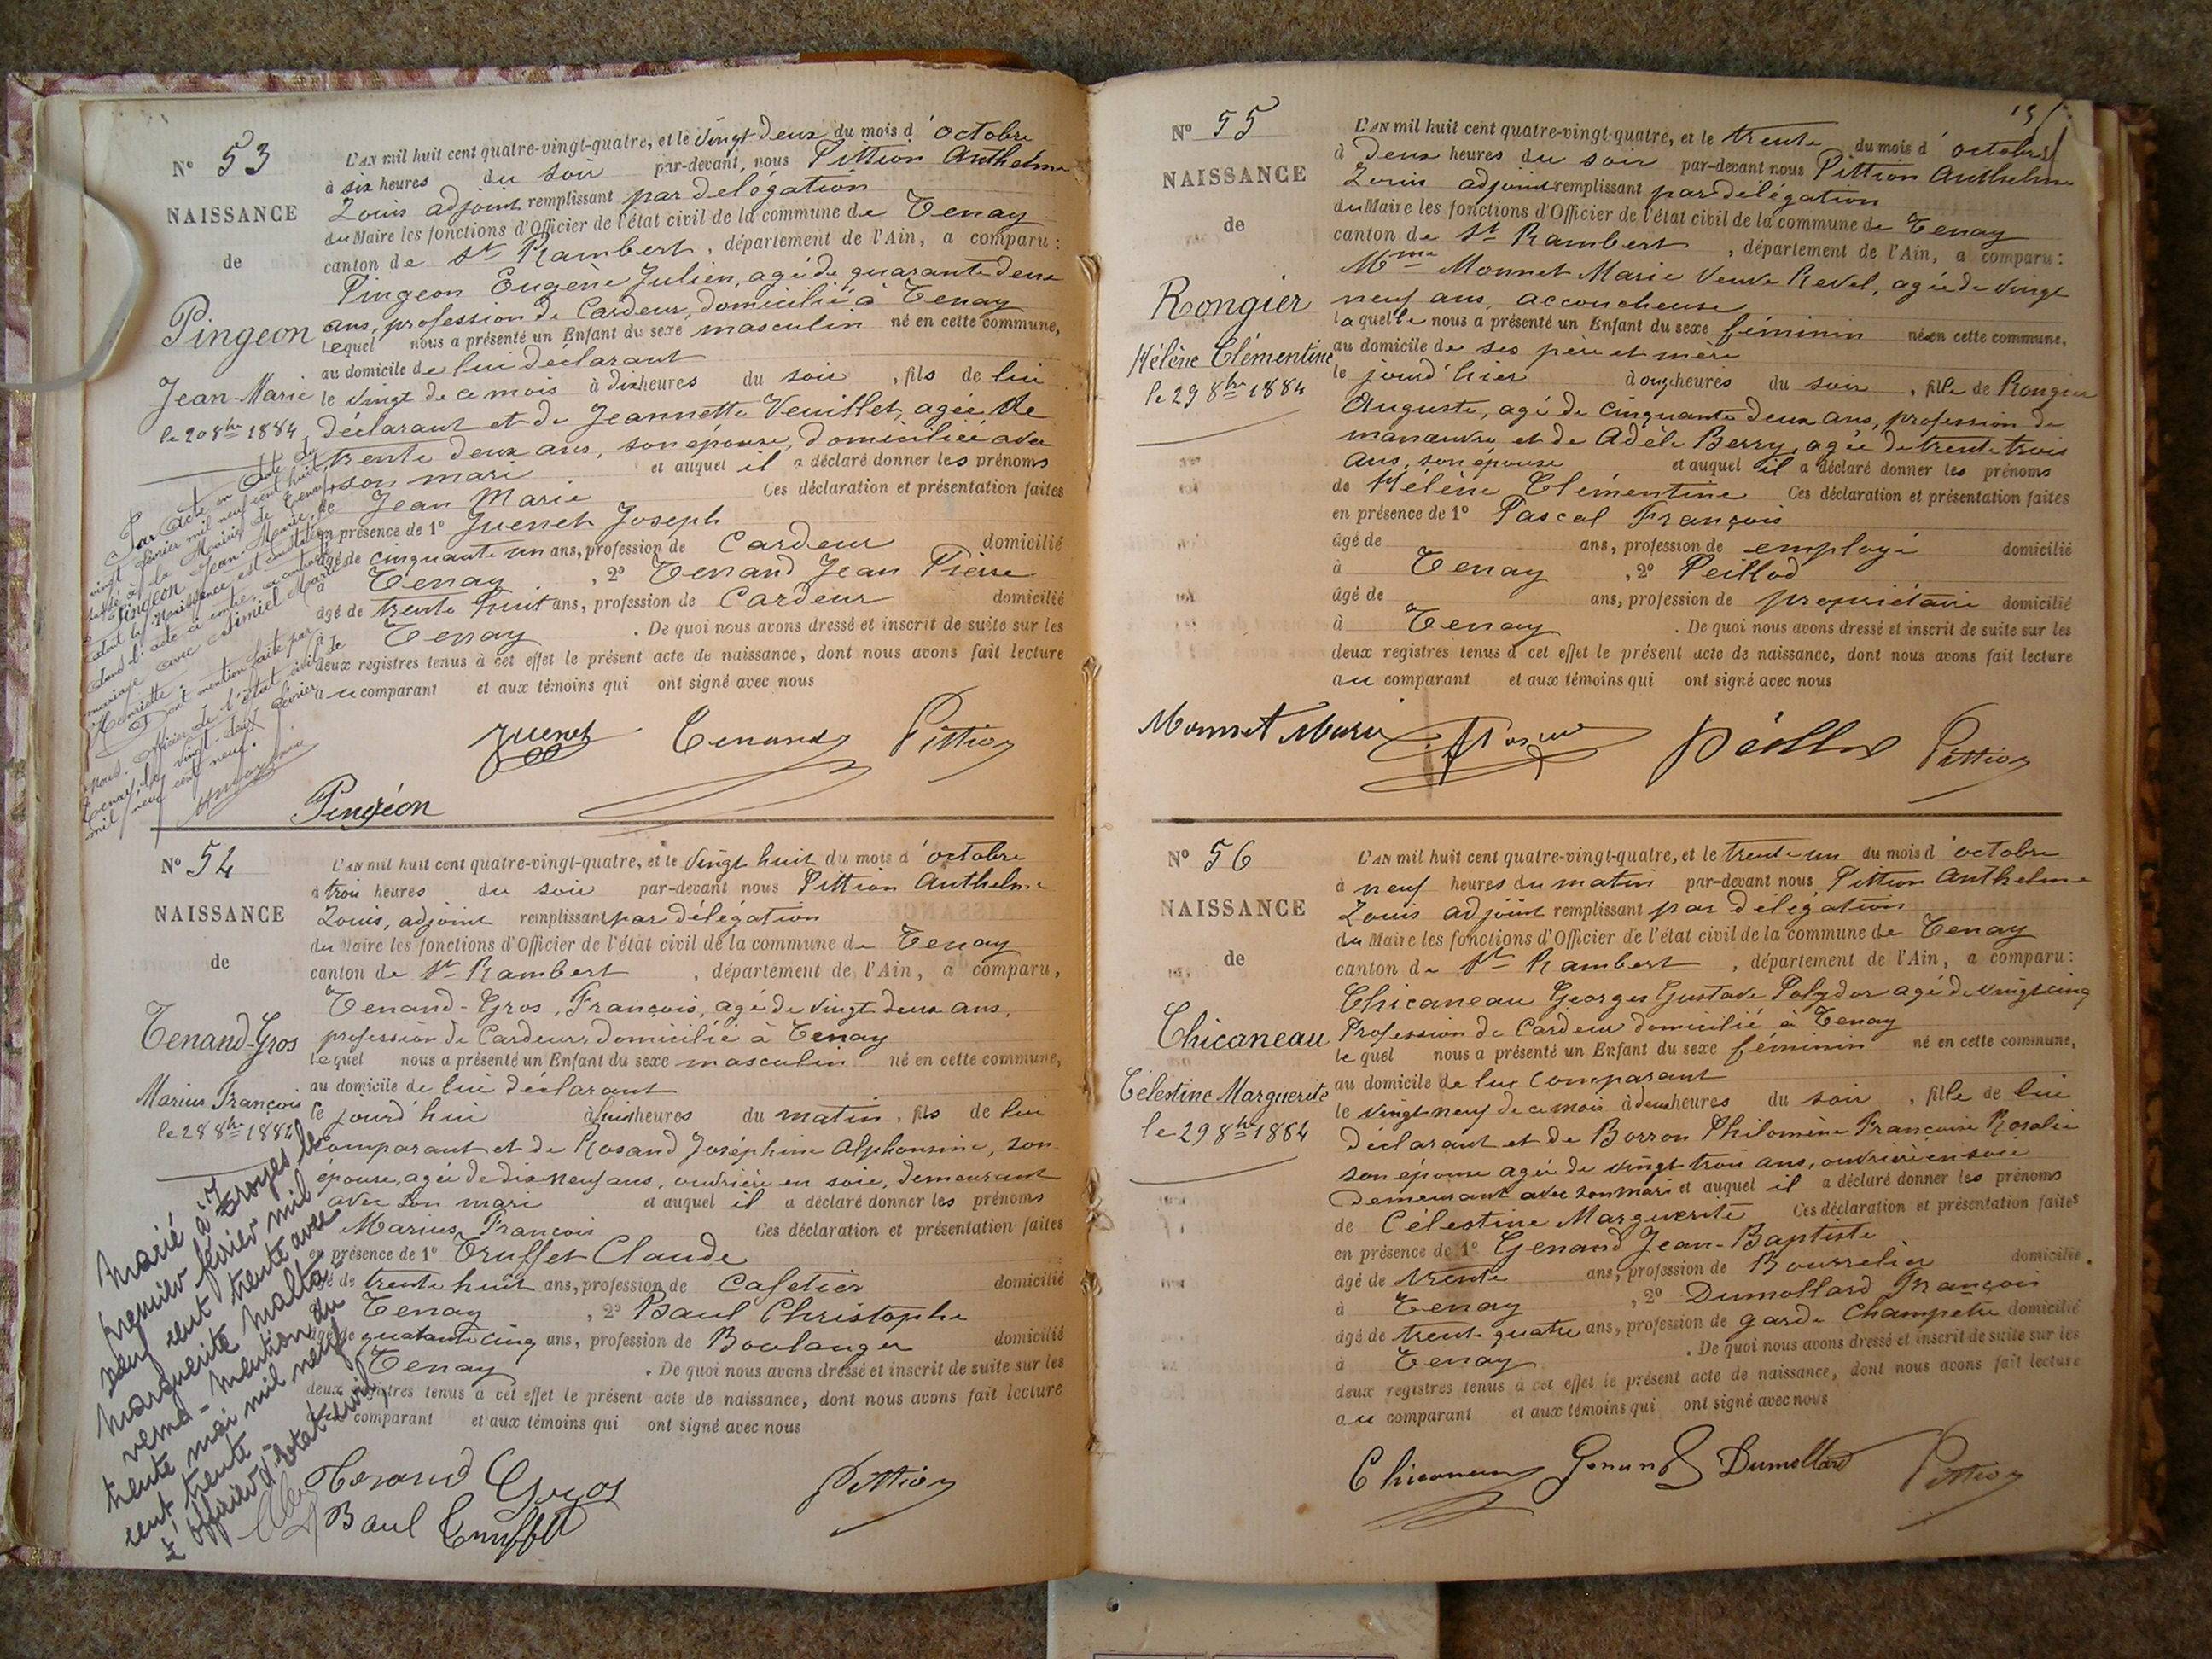 N° 53
NAISSANCE
de
Pingeon
Jean-Marie
le 20 8bre 1884
L'AN mil huit cent quatre-vingt-quatre, et le vingt deux du mois d'octobre
à six heures du soir par-devant nous Pittion Anthelme
Louis adjoint remplissant par délégation
du Maire les fonctions d'Officier de l'état civil de la commune de Tenay
canton de St Rambert, département de l'Ain, a comparu :
Pingeon Eugène Julien, agé de quarante deux
ans, profession de Cardeur, domicilié à Tenay
Lequel nous a présenté un Enfant du sexe masculin né en cette commune,
au domicile de lui déclarant
le vingt de ce mois à dix heures du soir, fils de lui
déclarant et de Jeannette Veuillet, agée de
trente deux ans, son épouse, domiciliée avec
son mari et auquel il a déclaré donner les prénoms
de Jean Marie Ces déclaration et présentation faites
en présence de 1° Juenet Joseph
âgé de cinquante un ans, profession de Cardeur domicilié
à Tenay, 2° Tenand Jean Pierre
âgé de trente huit ans, profession de Cardeur domicilié
Tenay. De quoi nous avons dressé et inscrit de suite sur les
deux registres tenus à cet effet le présent acte de naissance, dont nous avons fait lecture
au comparant et aux témoins qui ont signé avec nous
Juenet Tenand Pittion
Pingéon
Par acte en date du
vingt février mil neuf cent huit,
passé à la Mairie de Tenay,
Pingeon Jean-Marie, de
dont la naissance est constatée
dans l'acte ci-contre, a contracté
mariage avec Marie
Henriette.
Dont mention faite par
officier de l'état civil de
Tenay, le vingt-deux février
mil neuf cent neuf.
N° 54
NAISSANCE
de
Tenand-Gros
Marius François
le 28 8bre 1884
L'AN mil huit cent quatre-vingt-quatre, et le vingt huit du mois d'octobre
à trois heures du soir par-devant nous Pittion Anthelme
Louis, adjoint remplissant par délégation
du Maire les fonctions d'Officier de l'état civil de la commune de Tenay
canton de St Rambert, département de l'Ain, a comparu,
Tenand-Gros, François, agé de vingt deux ans,
profession de Cardeur, domicilié à Tenay
lequel nous a présenté un Enfant du sexe masculin né en cette commune,
au domicile de lui déclarant
le jourd'hui à huit heures du matin, fils de lui
comparant et de Rosand Joséphine Alphonsine, son
épouse, agée de dix neuf ans, ouvrière en soie, demeurant
avec son mari et auquel il a déclaré donner les prénoms
Marius François Ces déclaration et présentation faites
en présence de 1° Truffet Claude
âgé de trente huit ans, profession de Cafetier domicilié
Tenay, 2° Baul Christophe
âgé de quarante cinq ans, profession de Boulanger domicilié
Tenay. De quoi nous avons dressé et inscrit de suite sur les
deux registres tenus à cet effet le présent acte de naissance, dont nous avons fait lecture
au comparant et aux témoins qui ont signé avec nous
Tenand Gros Pittion
Baul Truffet
Marié à Troyes le
premier février mil
neuf cent trente avec
Marguerite Malta-
verne - Mention du
trente mai mil neuf
cent trente -
L'officier d'état civil
N° 55
NAISSANCE
de
Rongier
Hélène Clémentine
le 29 8bre 1884
L'AN mil huit cent quatre-vingt-quatre, et le trente du mois d'octobre
à deux heures du soir par-devant nous Pittion Anthelme
Louis adjoint remplissant par délégation
du Maire les fonctions d'Officier de l'état civil de la commune de Tenay
canton de St Rambert, département de l'Ain, a comparu :
Mme Monnet Marie Veuve Revel, agée de vingt
neuf ans, accoucheuse
laquelle nous a présenté un Enfant du sexe féminin né en cette commune,
au domicile de ses père et mère
le jourd'hier à onze heures du soir, fille de Rongier
Auguste, agé de cinquante deux ans, profession de
manœuvre et de Adèle Berry, agée de trente trois
ans, son épouse et auquel il a déclaré donner les prénoms
de Hélène Clémentine Ces déclaration et présentation faites
en présence de 1° Pascal François
âgé de ans, profession de employé domicilié
à Tenay, 2° Peillod
âgé de ans, profession de propriétaire domicilié
à Tenay. De quoi nous avons dressé et inscrit de suite sur les
deux registres tenus à cet effet le présent acte de naissance, dont nous avons fait lecture
au comparant et aux témoins qui ont signé avec nous
Monnet Marie Peillod Pittion
N° 56
NAISSANCE
de
Chicaneau
Célestine Marguerite
le 29 8bre 1884
L'AN mil huit cent quatre-vingt-quatre, et le trente un du mois d'octobre
à neuf heures du matin par-devant nous Pittion Anthelme
Louis adjoint remplissant par délégation
du Maire les fonctions d'Officier de l'état civil de la commune de Tenay
canton de St Rambert, département de l'Ain, a comparu :
Chicaneau Georges Gustave Polydor agé de vingt cinq
Profession de Cardeur domicilié à Tenay
lequel nous a présenté un Enfant du sexe féminin né en cette commune,
au domicile de lui comparant
le vingt neuf de ce mois à deux heures du soir, fille de lui
déclarant et de Borron Philomène Françoise Rosalie
son épouse agée de vingt trois ans, ouvrière en soie
demeurant avec son mari et auquel il a déclaré donner les prénoms
de Célestine Marguerite Ces déclaration et présentation faites
en présence de 1° Genand Jean-Baptiste
âgé de trente ans, profession de Bourrelier domicilié
à Tenay, 2° Dumollard François
âgé de trente quatre ans, profession de garde champetre domicilié
à Tenay. De quoi nous avons dressé et inscrit de suite sur les
deux registres tenus à cet effet le présent acte de naissance, dont nous avons fait lecture
au comparant et aux témoins qui ont signé avec nous
Chicaneau Genand Dumollard Pittion